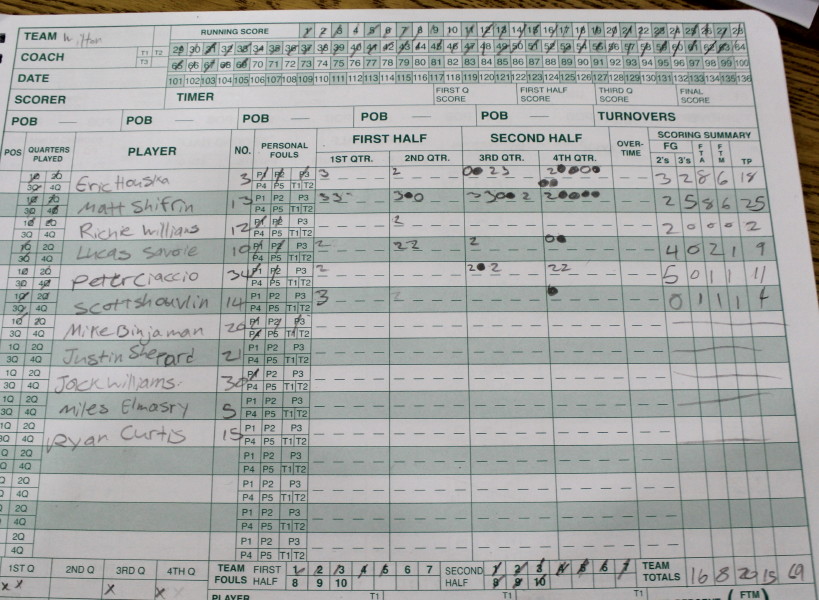 TEAM Wilton RUNNING SCORE 1 2 3 4 5 6 7 8 9 10 11 12 13 14 15 16 17 18 19 20 21 22 23 24 25 26 27 28
COACH T1 T2 29 30 31 32 33 34 35 36 37 38 39 40 41 42 43 44 45 46 47 48 49 50 51 52 53 54 55 56 57 58 59 60 61 62 63 64
T3 65 66 67 68 69 70 71 72 73 74 75 76 77 78 79 80 81 82 83 84 85 86 87 88 89 90 91 92 93 94 95 96 97 98 99 100
DATE 101 102 103 104 105 106 107 108 109 110 111 112 113 114 115 116 117 118 119 120 121 122 123 124 125 126 127 128 129 130 131 132 133 134 135 136
SCORER TIMER FIRST Q SCORE FIRST HALF SCORE THIRD Q SCORE FINAL SCORE
POB — POB — POB — POB — POB — TURNOVERS
POS QUARTERS PLAYED PLAYER NO. PERSONAL FOULS FIRST HALF SECOND HALF OVER-TIME SCORING SUMMARY
1ST QTR. 2ND QTR. 3RD QTR. 4TH QTR. FG 2's 3's FTA FTM TP
1Q 2Q 3Q 4Q Eric Houska 3 P1 P2 P3 P4 P5 T1 T2 3 2 3 2 8 6 18
1Q 2Q 3Q 4Q Matt Shifrin 13 P1 P2 P3 P4 P5 T1 T2 33 2 5 8 6 25
1Q 2Q 3Q 4Q Richie Williams 12 P1 P2 P3 P4 P5 T1 T2 2 2 0 0 0 2
1Q 2Q 3Q 4Q Lucas Savoie 10 P1 P2 P3 P4 P5 T1 T2 2 22 2 4 0 2 1 9
1Q 2Q 3Q 4Q Peter Ciaccio 34 P1 P2 P3 P4 P5 T1 T2 2 22 5 0 1 1 11
1Q 2Q 3Q 4Q Scott Shouvlin 14 P1 P2 P3 P4 P5 T1 T2 3 0 1 1 1 4
1Q 2Q 3Q 4Q Mike Binjaman 20 P1 P2 P3 P4 P5 T1 T2
1Q 2Q 3Q 4Q Justin Shepard 21 P1 P2 P3 P4 P5 T1 T2
1Q 2Q 3Q 4Q Jack Williams 30 P1 P2 P3 P4 P5 T1 T2
1Q 2Q 3Q 4Q Miles Elmasry 5 P1 P2 P3 P4 P5 T1 T2
1Q 2Q 3Q 4Q Ryan Curtis 15 P1 P2 P3 P4 P5 T1 T2
2Q 4Q P1 P2 P3 P4 P5 T1 T2
2Q 4Q P1 P2 P3 P4 P5 T1 T2
2Q 4Q P1 P2 P3 P4 P5 T1 T2
2Q 4Q P1 P2 P3 P4 P5 T1 T2
1ST Q 2ND Q 3RD Q 4TH Q TEAM FOULS FIRST HALF 1 2 3 4 5 6 7 8 9 10 SECOND HALF 1 2 3 4 5 6 7 8 9 10 TEAM TOTALS 16 8 20 15 69
X X X X PLAYER T1 T1 T1 (FTM